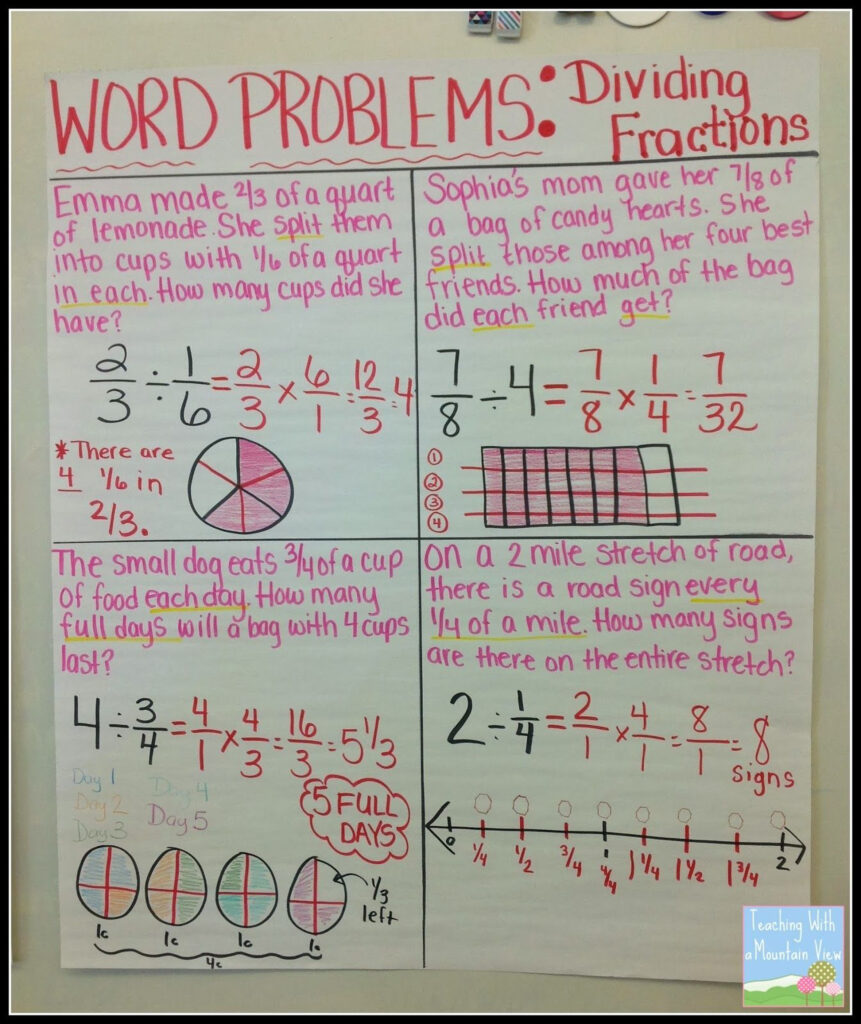 WORD PROBLEMS: Dividing Fractions
Emma made 2/3 of a quart
of lemonade. She split them
into cups with 1/6 of a quart
in each. How many cups did she
have?
2/3 ÷ 1/6 = 2/3 × 6/1 = 12/3 = 4
*There are
4 1/6 in
2/3.
Sophia's mom gave her 7/8 of
a bag of candy hearts. She
split those among her four best
friends. How much of the bag
did each friend get?
7/8 ÷ 4 = 7/8 × 1/4 = 7/32
1
2
3
4
The small dog eats 3/4 of a cup
of food each day. How many
full days will a bag with 4 cups
last?
4 ÷ 3/4 = 4/1 × 4/3 = 16/3 = 5 1/3
Day 1 Day 4
Day 2 Day 5
Day 3
5 FULL
DAYS
1/3
left
1c 1c 1c 1c
4c
On a 2 mile stretch of road,
there is a road sign every
1/4 of a mile. How many signs
are there on the entire stretch?
2 ÷ 1/4 = 2/1 × 4/1 = 8/1 = 8
signs
0 1/4 1/2 3/4 4/4 1 1/4 1 1/2 1 3/4 2
Teaching With
a Mountain View